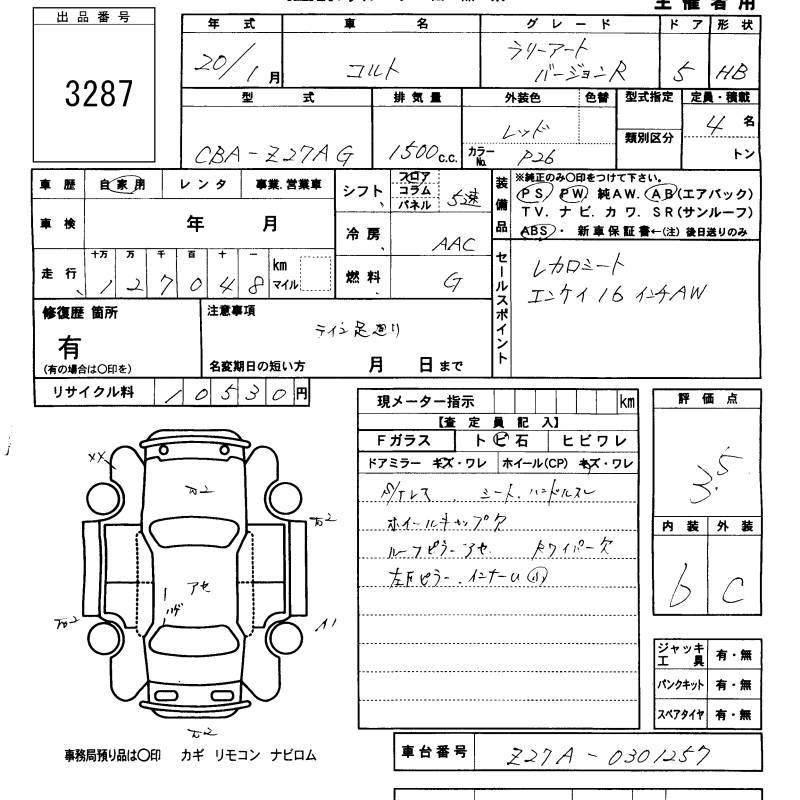 出品番号
3287
年式
20/1月
車名
コルト
グレード
ラリーアート
バージョンR
ドア
5
形状
HB
型式
CBA-Z27AG
排気量
1500c.c.
外装色
レッド
色替
カラーNo. P26
型式指定
類別区分
定員・積載
4名
トン
車歴
自家用
レンタ
事業.営業車
車検
年 月
走行
十万 万 千 百 十 一
127048
km
マイル
シフト
フロア
コラム
パネル
5速
冷房
AAC
燃料
G
装備品
※純正のみ〇印をつけて下さい。
PS. PW. 純AW. AB(エアバック)
TV. ナビ. カワ. SR(サンルーフ)
ABS・ 新車保証書←(注) 後日送りのみ
セールスポイント
レカロシート
エンケイ16インチAW
修復歴 箇所
有
(有の場合は〇印を)
注意事項
テイン足廻り
名変期日の短い方 月 日まで
リサイクル料
10530円
現メーター指示
km
【査定員記入】
Fガラス
トビ石
ヒビワレ
ドアミラー キズ・ワレ
ホイール(CP) キズ・ワレ
シート、ハンドルスレ
ホイールキャップ欠
ルーフピラーアセ
Rワイパー欠
評価点
3.5
内装
外装
b
C
XX
アセ
ハゲ
A1
ジャッキ
工具
有・無
パンクキット
有・無
スペアタイヤ
有・無
事務局預り品は〇印 カギ リモコン ナビロム
車台番号
Z27A-0301257